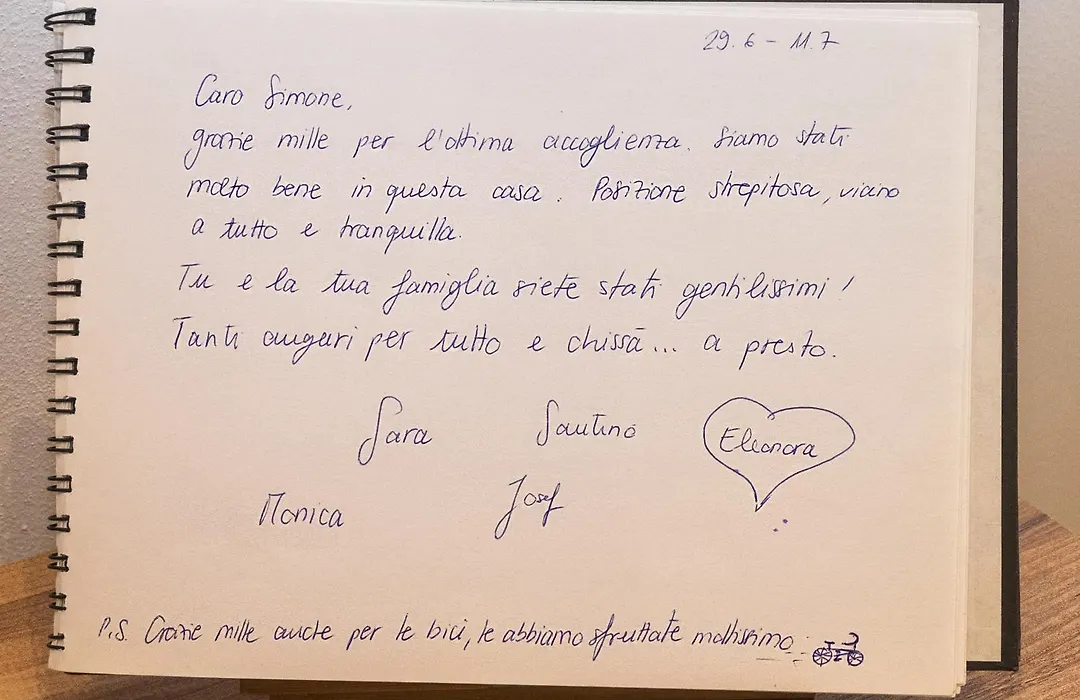 29.6 - 11.7
Caro Simone,
grazie mille per l'ottima accoglienza. Siamo stati
molto bene in questa casa. Posizione strepitosa, vicino
a tutto e tranquilla.
Tu e la tua famiglia siete stati gentilissimi!
Tanti auguri per tutto e chissà... a presto.
Sara Santino Eleonora
Monica Josef
P.S. Grazie mille anche per le bici, le abbiamo sfruttate moltissimo